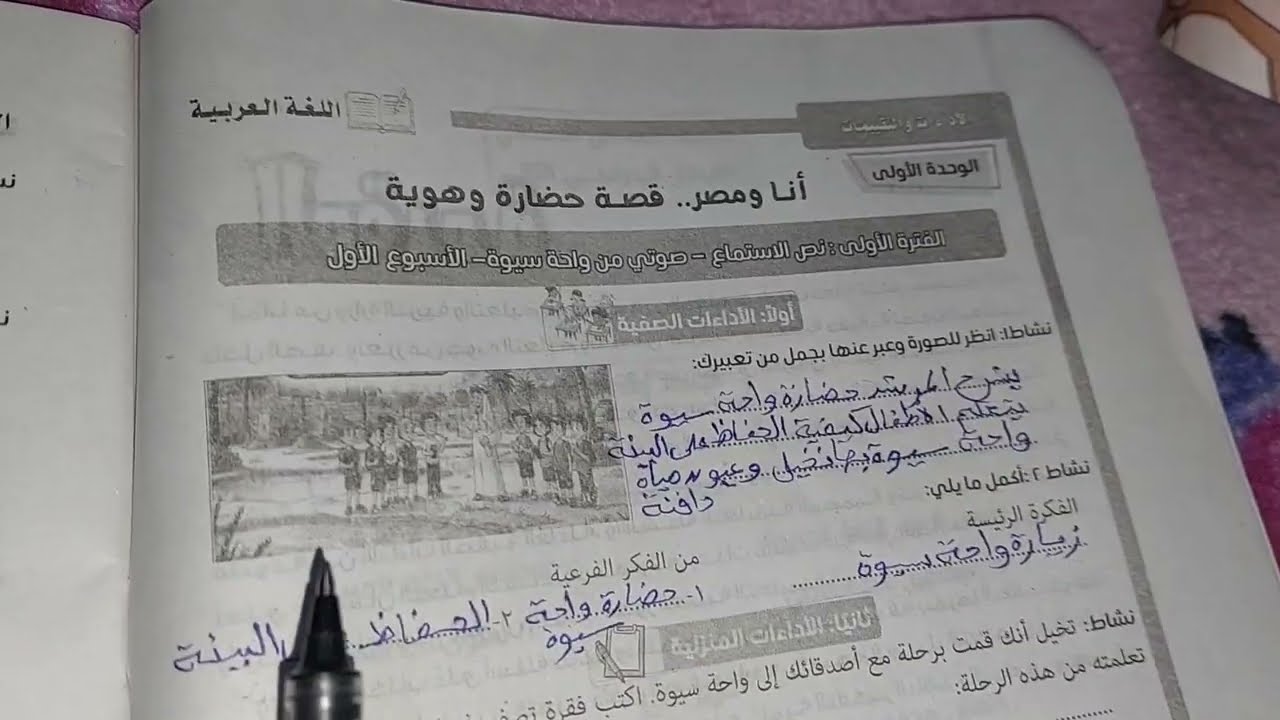 اللغة العربية
الأداءات والتقييمات
الوحدة الأولى
أنا ومصر.. قصة حضارة وهوية
الفترة الأولى: نص الاستماع - صوتي من واحة سيوة- الأسبوع الأول
أولاً: الأداءات الصفية
نشاط١: انظر للصورة وعبر عنها بجمل من تعبيرك:
يشرح المرشد حضارة واحة سيوة
يتعلم الأطفال كيفية الحفاظ على البيئة
واحة سيوة بها نخيل وعيون مياة
دافئة
نشاط ٢: أكمل ما يلي:
الفكرة الرئيسة
زيارة واحة سيوة
من الفكر الفرعية
١- حضارة واحة سيوة
٢- الحفاظ البيئة
ثانيًا: الأداءات المنزلية
نشاط: تخيل أنك قمت برحلة مع أصدقائك إلى واحة سيوة. اكتب فقرة
تعلمته من هذه الرحلة: